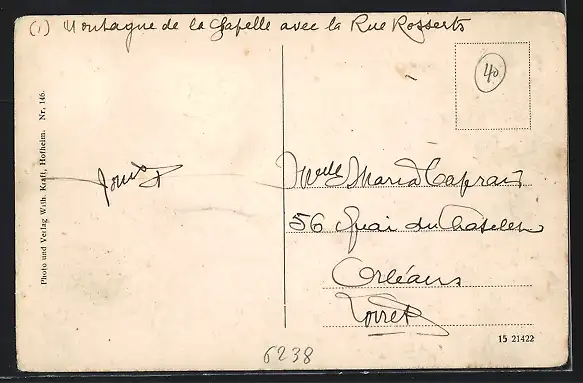 (1) Montagne de la Chapelle avec la Rue Rossert
40
Photo und Verlag Wilh. Kraft, Hofheim. Nr. 146.
Melle Maria
56 Quai du Chatelet
Orléans
Loiret
15 21422
6238